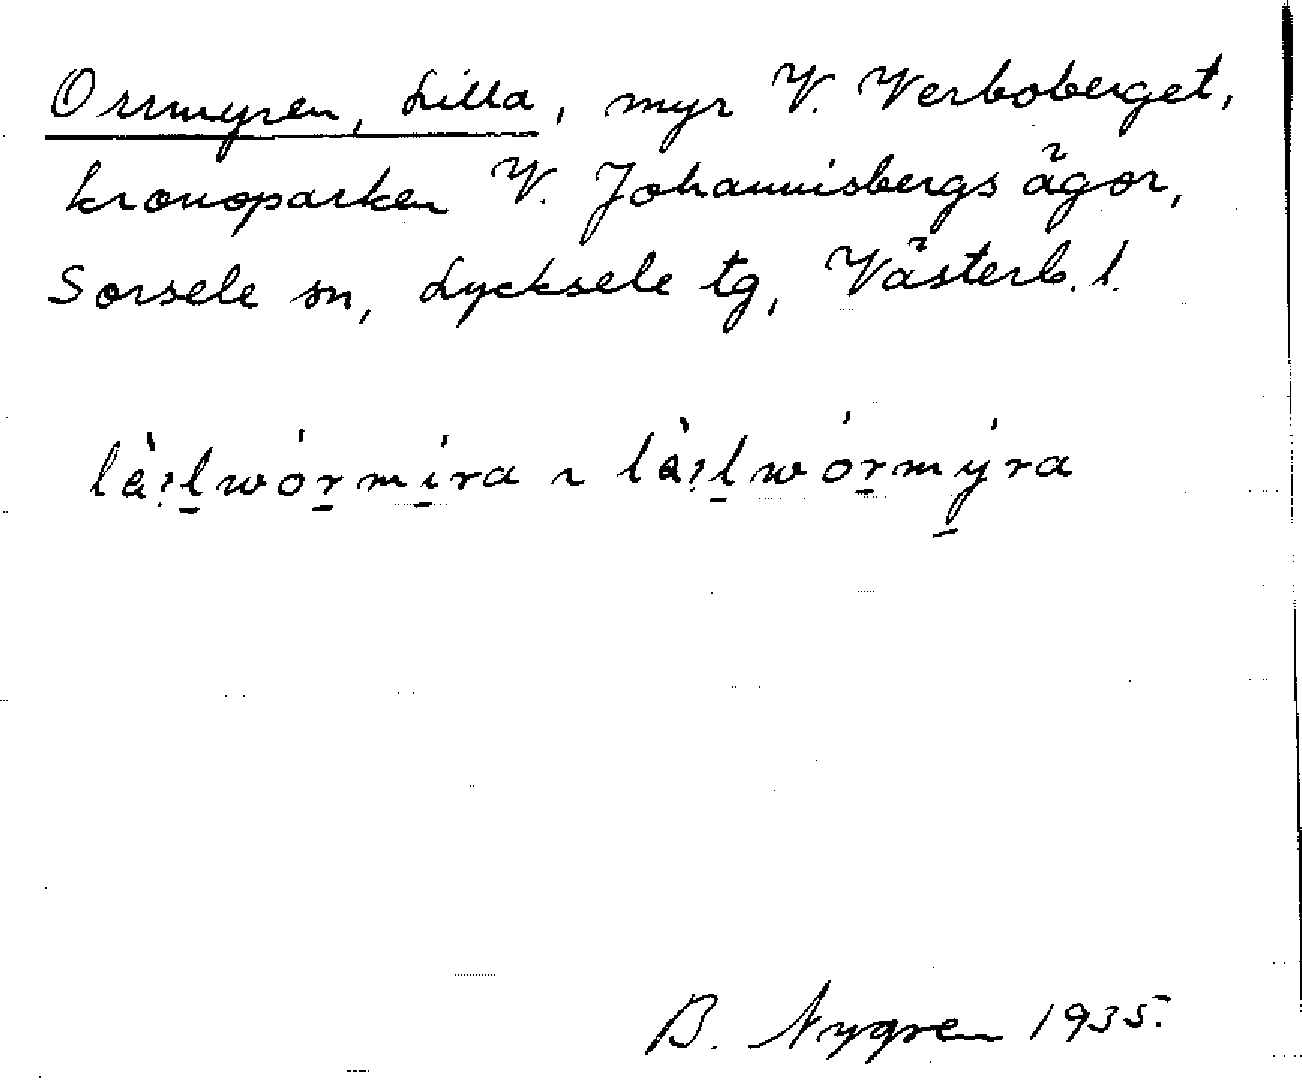 Orrmyren, Lilla, myr V. Verboberget,
kronoparken V. Johannisbergs ägor,
Sorsele sn, Lycksele tg, Västerb. l.
B. Nygren 1935.